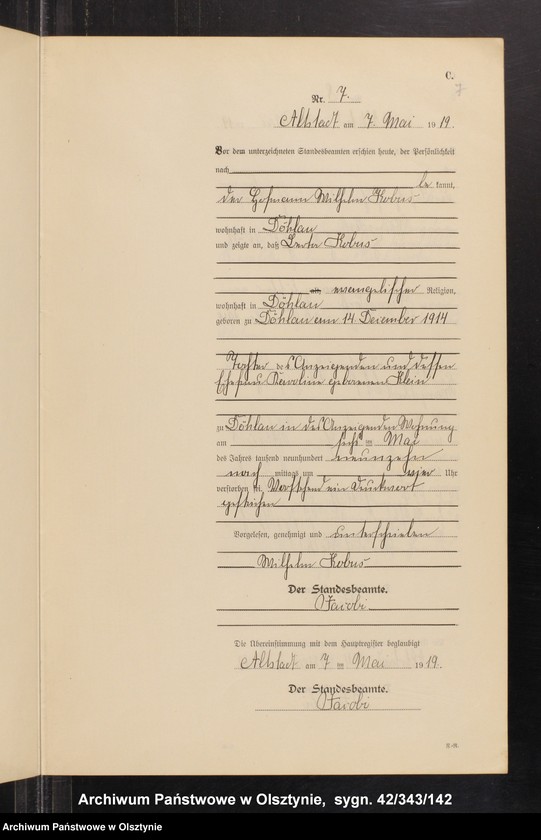 C.
7
Nr. 7.
Altstadt am 7. Mai 1919.
Vor dem unterzeichneten Standesbeamten erschien heute, der Persönlichkeit
nach
be kannt,
der Hofmann Wilhelm Kobus
wohnhaft in Döhlau
und zeigte an, daß Kobus
alt, evangelischer Religion,
wohnhaft in Döhlau
geboren zu Döhlau am 14. Dezember 1914
Tochter des Anzeigenden und dessen
Ehefrau Karoline geborenen Klein
zu Döhlau in des Anzeigenden Wohnung
am sechs ten Mai
des Jahres tausend neunhundert neunzehn
nach mittags um Uhr
verstorben sei. Vorstehend ein Druckwort
gestrichen
Vorgelesen, genehmigt und unterschrieben
Wilhelm Kobus
Der Standesbeamte.
Jacobi
Die Übereinstimmung mit dem Hauptregister beglaubigt
Altstadt am 7 ten Mai 1919.
Der Standesbeamte.
Jacobi
Archiwum Państwowe w Olsztynie, sygn. 42/343/142
Archiwum Państwowe w Olsztynie